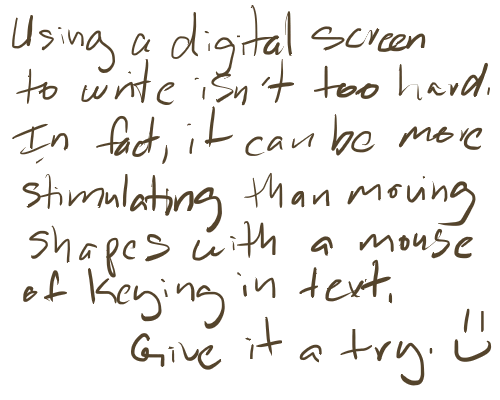 Using a digital screen
to write isn't too hard.
In fact, it can be more
stimulating than moving
shapes with a mouse
of keying in text.
Give it a try. :)